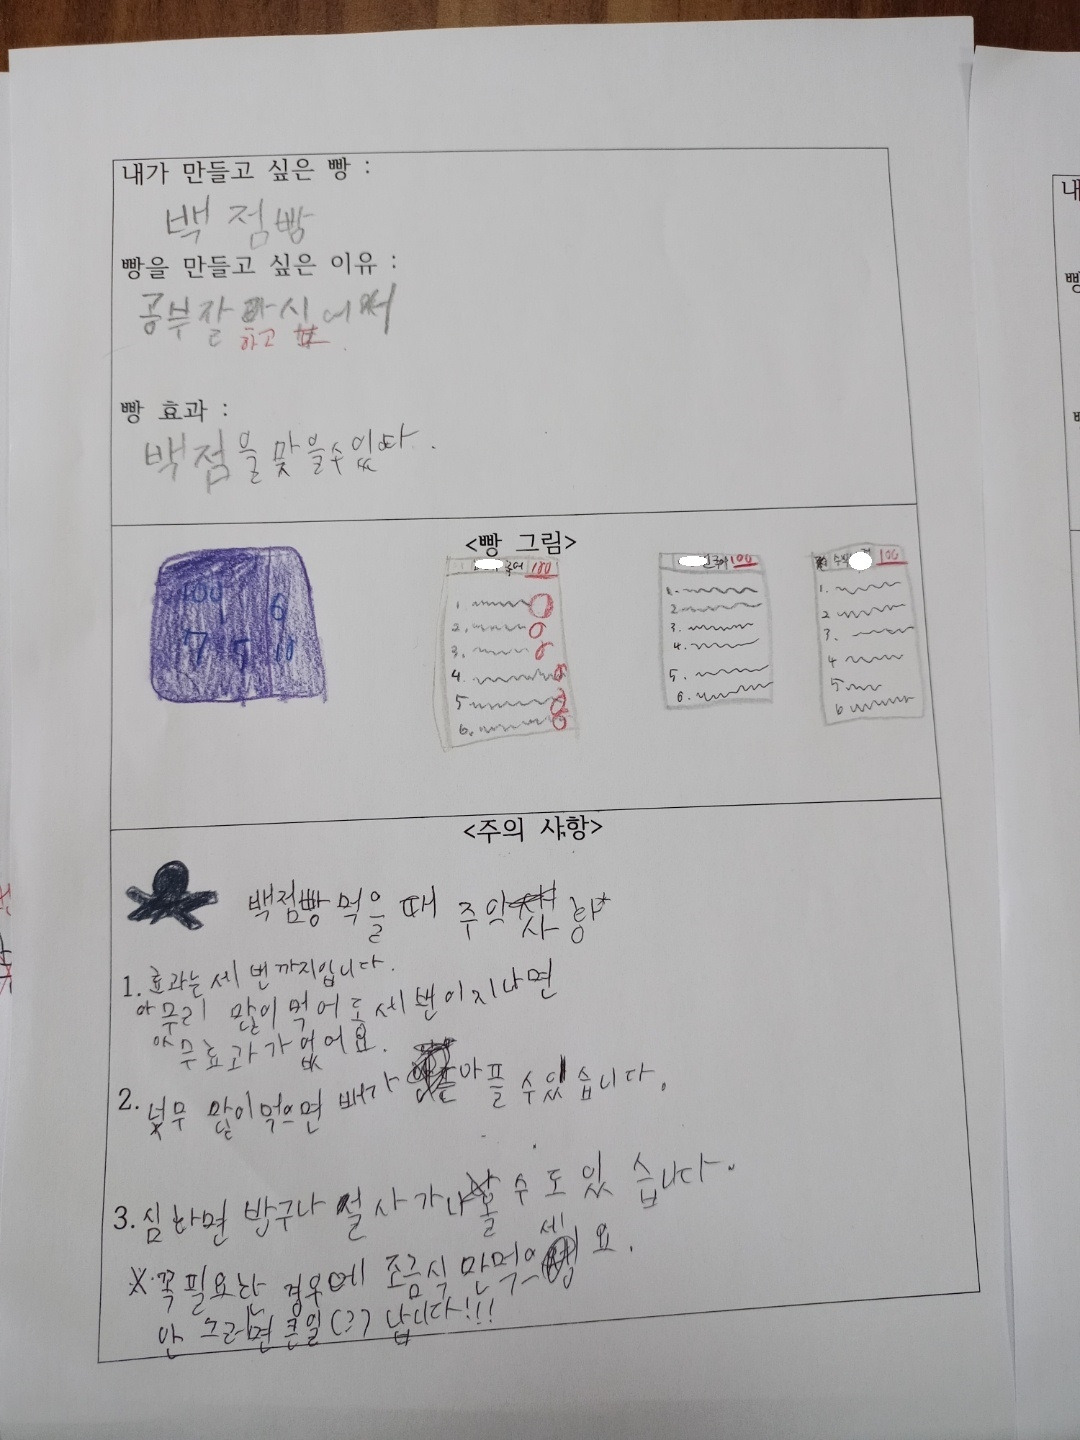 내가 만들고 싶은 빵 :
백점빵
빵을 만들고 싶은 이유 :
공부잘 싶어서
하고
빵 효과 :
백점을 맞을수있다.
<빵 그림>
100 1 6
7 5 10
국어 100
1.
2.
3.
4.
5
6.
100
1.
2.
3.
4.
5.
6.
100
1.
2
3.
4
5
6
<주의 사항>
백점빵 먹을 때 주의 사항
1. 효과는 세 번 까지입니다.
아무리 많이 먹어도 세 번이 지나면
아무효과가 없어요.
2. 넘무 많이먹으면 배가 아플 수있습니다.
3. 심하면 방구나 설사가 나올 수도 있습니다.
※ 꼭 필요한 경우에 조금식 만먹으세요.
안 그러면 큰일(?) 납니다!!!